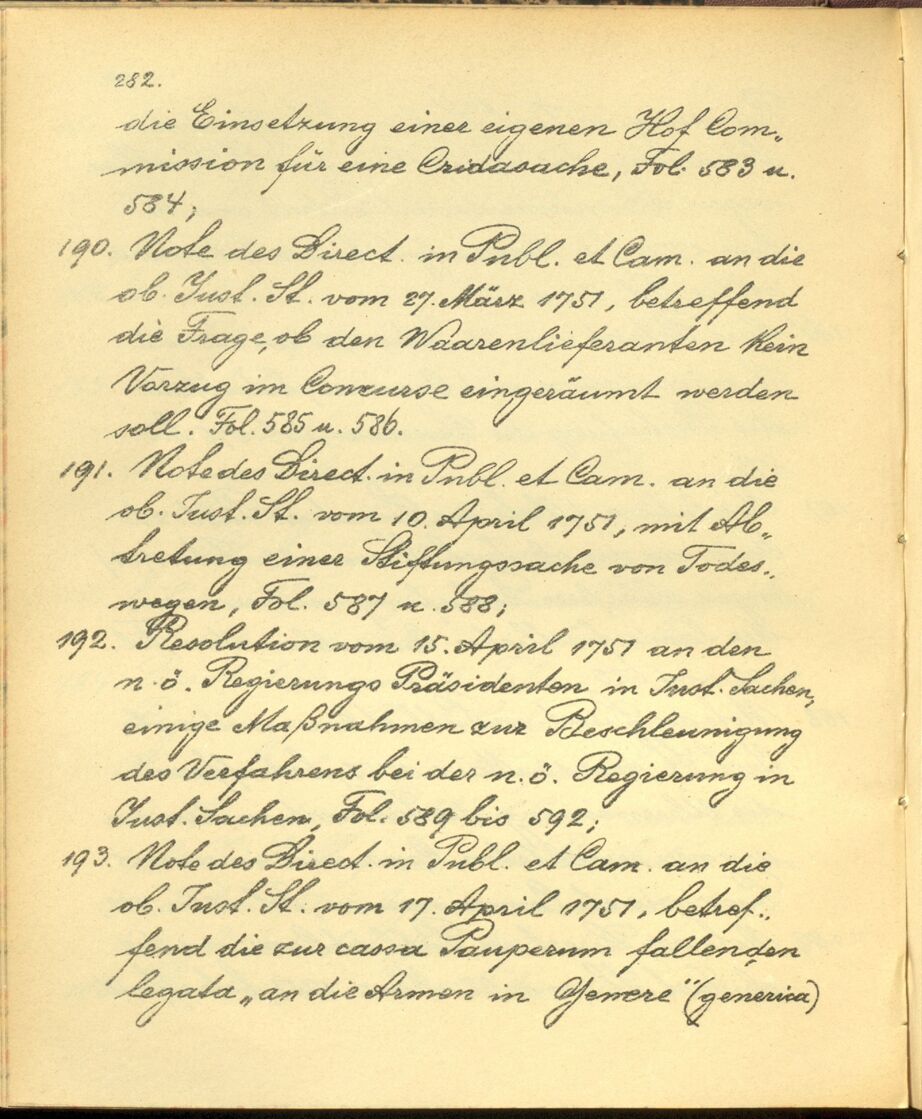 282.
die Einsetzung einer eigenen Hof Com„
mission für eine Cridasache, Fol. 583 u.
584;
190. Note des Direct. in Publ. et Cam. an die
ob. Just. St. vom 27. März 1751, betreffend
die Frage, ob den Waarenlieferanten kein
Vorzug im Concurse eingeräumt werden
soll. Fol. 585 u. 586.
191. Note des Direct. in Publ. et Cam. an die
ob. Just. St. vom 10. April 1751, mit Ab„
tretung einer Stiftungssache von Todes„
wegen, Fol. 587 u. 588;
192. Resolution vom 15. April 1751 an den
n. ö. Regierungs Präsidenten in Just. Sachen,
einige Maßnahmen zur Beschleunigung
des Verfahrens bei der n. ö. Regierung in
Just. Sachen, Fol. 589 bis 592;
193. Note des Direct. in Publ. et Cam. an die
ob. Just. St. vom 17. April 1751, betref„
fend die zur cassa Pauperum fallenden
legata „an die Armen in Genere" (generica)